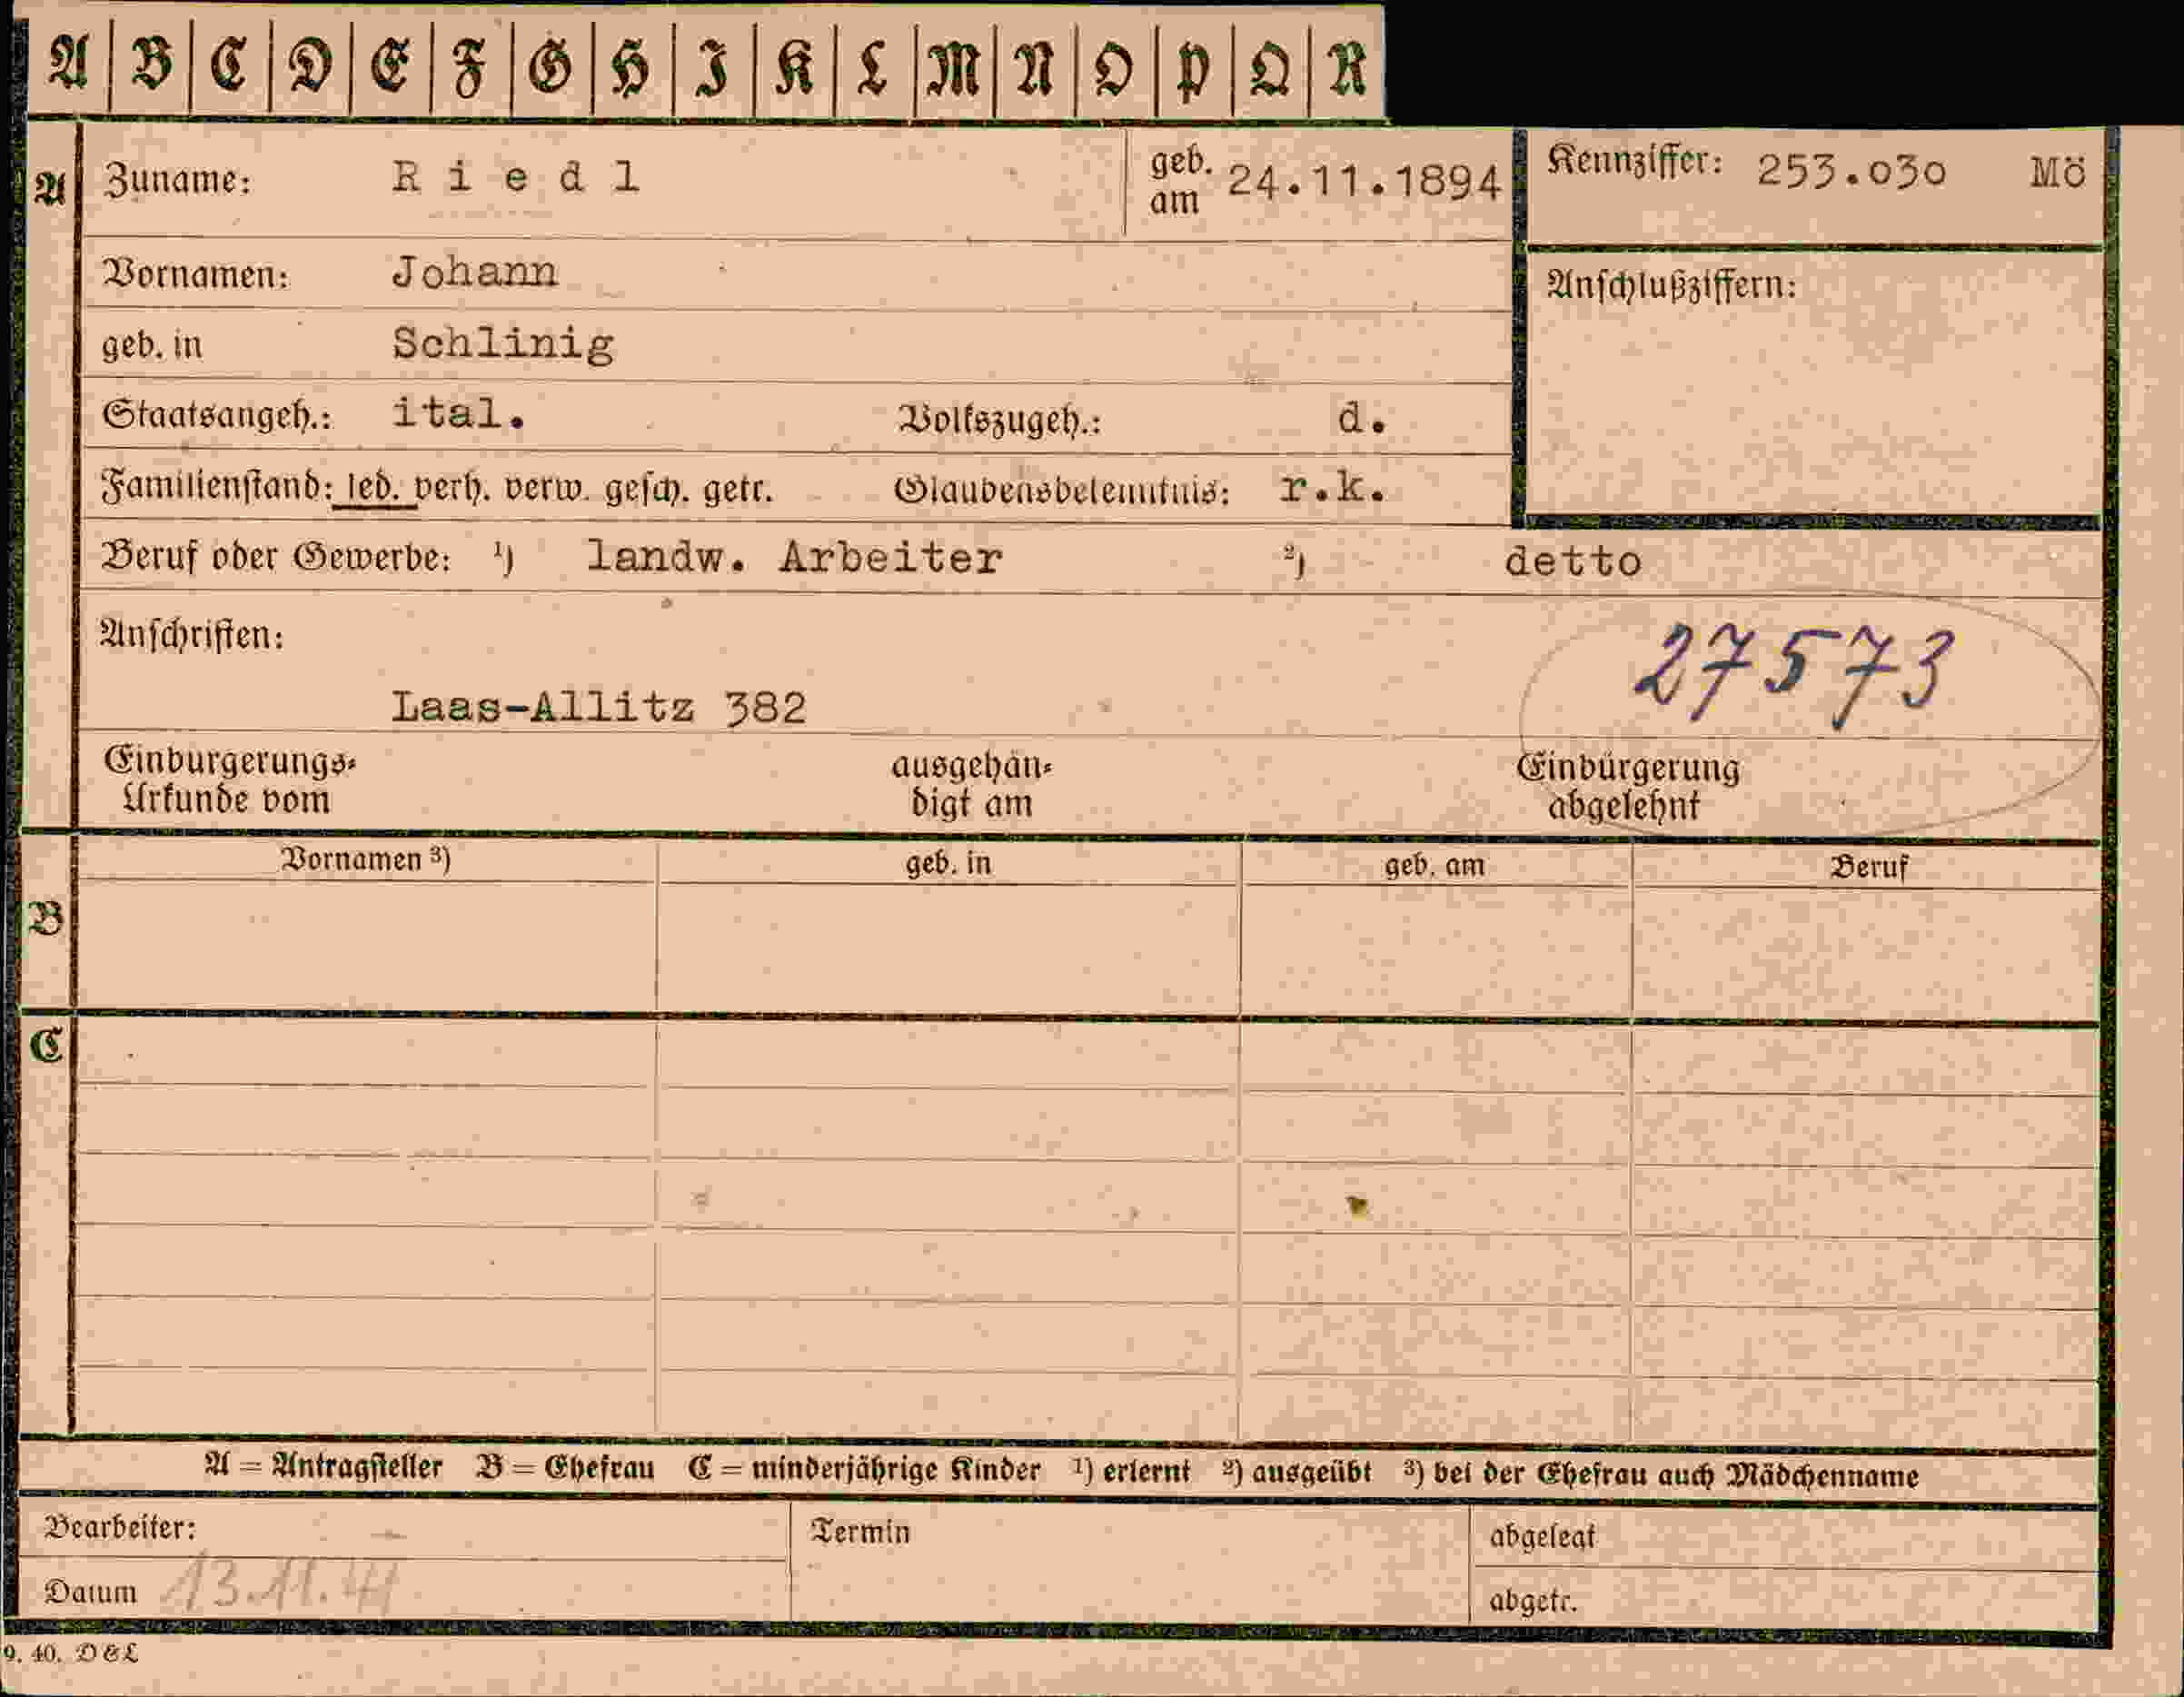 A B C D E F G H I K L M N O P Q R
A Zuname: Riedl geb. am 24.11.1894 Kennziffer: 253.030 Mö
Vornamen: Johann Anschlußziffern:
geb. in Schlinig
Staatsangeh.: ital. Volkszugeh.: d.
Familienstand: led. verh. verw. gesch. getr. Glaubensbekenntnis: r.k.
Beruf oder Gewerbe: ¹) landw. Arbeiter ²) detto
Anschriften: 27573
Laas-Allitz 382
Einbürgerungs- ausgehän- Einbürgerung
Urkunde vom digt am abgelehnt
Vornamen ³) geb. in geb. am Beruf
B
C
A = Antragsteller B = Ehefrau C = minderjährige Kinder ¹) erlernt ²) ausgeübt ³) bei der Ehefrau auch Mädchenname
Bearbeiter: Termin abgelegt
Datum 13.11.41 abgetr.
9. 40. D&L